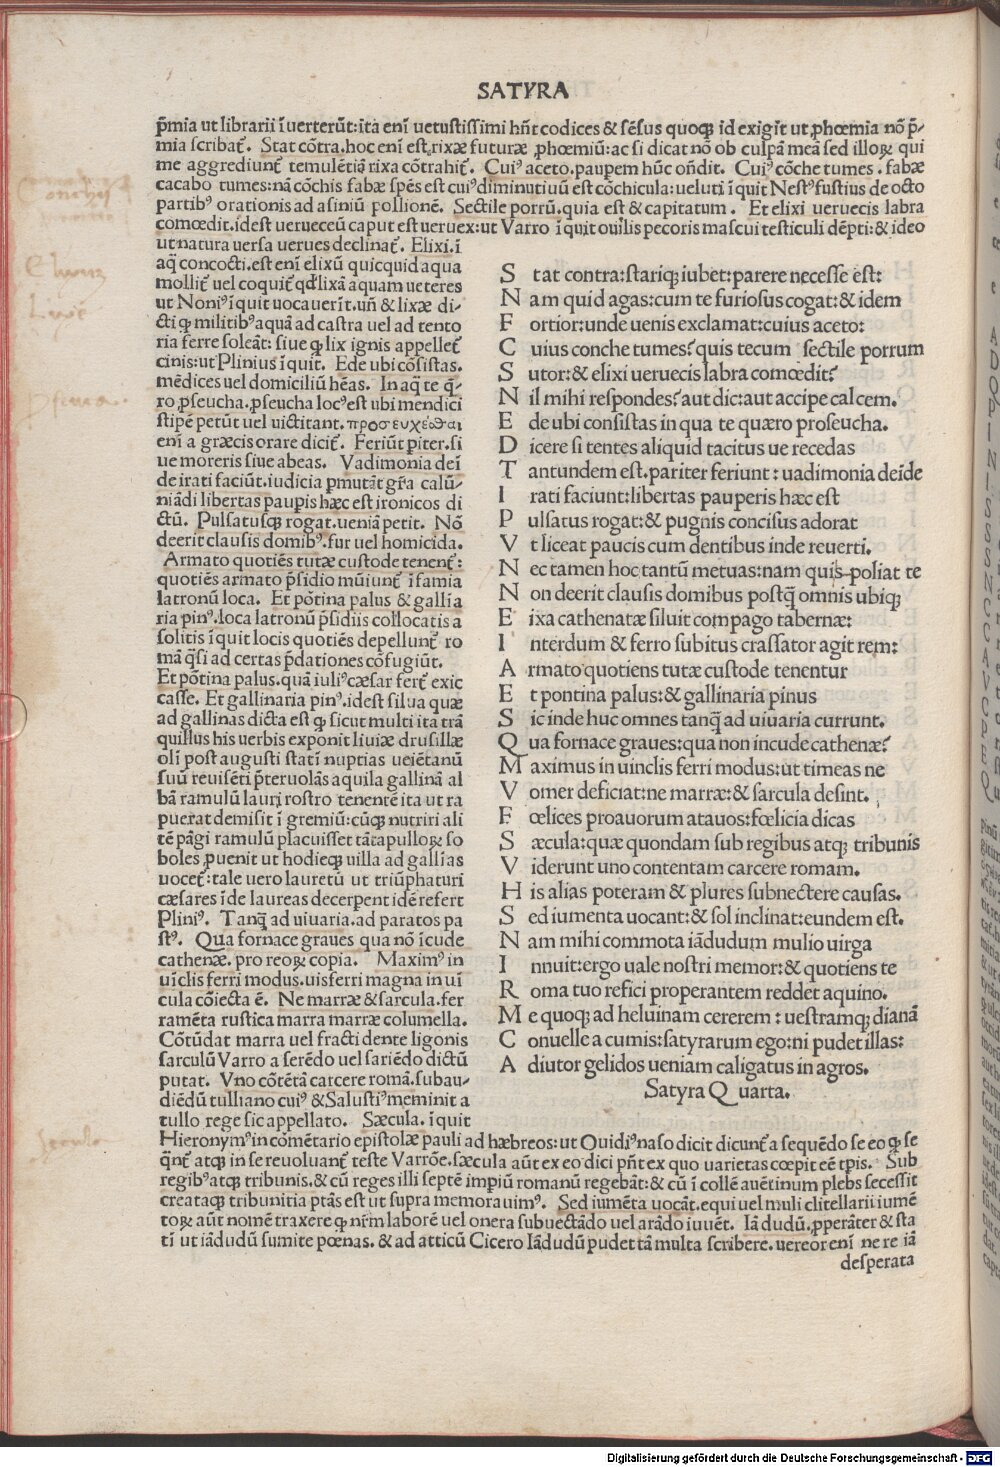 SATVRA
p̃mia ut librarii ĩuerterũt:ita enĩ uetustissimi hñt codices & sẽsus quoqꝫ id exigit ut ꝓhœmia nõ p̃-
mia scribat᷑. Stat cõtra.hoc enĩ est rixæ futuræ ꝓhœmiũ:ac si dicat nõ ob culpã meã sed illoꝝ qui
me aggrediunt᷑ temulẽtia rixa cõtrahit᷑. Cuiꝰ aceto.paupem hũc oñdit. Cuiꝰ cõche tumes.fabæ
cacabo tumes:nã cõchis fabæ spẽs est cuiꝰ diminutiuũ est cõchicula:ueluti ĩquit Nestꝰ fustius de octo
partibꝰ orationis ad asiniũ pollionẽ. Sectile porrũ.quia est & capitatum. Et elixi ueruecis labra
comœdit.idest uerueceũ caput est ueruex:ut Varro ĩquit ouilis pecoris mascui testiculi dẽpti:& ideo
ut natura uersa uerues declinat᷑. Elixi.ĩ
aq̃ concocti.est enĩ elixũ quicquid aqua
mollit᷑ uel coquit᷑ qđ lixã aquam ueteres
ut Noniꝰ ĩquit uocauerĩt.uñ & lixæ di-
cti ꝙ militibꝰ aquã ad castra uel ad tento
ria ferre soleãt: siue ꝙ lix ignis appellet᷑
cinis:ut Plinius ĩquit. Ede ubi cõsistas.
mẽdices uel domiciliũ hẽas. In aq̃ te q̃-
ro ꝓseucha.ꝓseucha locꝰ est ubi mendici
stipẽ petũt uel uictitant.προσευχεσθαι
enĩ a græcis orare dicit᷑. Feriũt piter.si
ue moreris siue abeas. Vadimonia deĩ
de irati faciũt.iudicia pmutãt gr̃a calũ-
niãdi libertas paupis hæc est ironicos di
ctũ. Pulsatusqꝫ rogat.ueniã petit. Nõ
deerit clausis domibꝰ.fur uel homicida.
Armato quotiẽs tutæ custode tenent᷑:
quotiẽs armato p̃sidio mũiunt᷑ ĩfamia
latronũ loca. Et põtina palus & gallĩa
ria pinꝰ.loca latronũ p̃sidiis collocatis a
solitis ĩquit locis quotiẽs depellunt᷑ ro
mã q̃si ad certas p̃dationes cõfugiũt.
Et põtina palus.quã iuliꝰ cæsar fert᷑ exic
casse. Et gallinaria pinꝰ.idest silua quæ
ad gallinas dicta est ꝙ sicut multi ita trã
quillus his uerbis exponit liuiæ drusillæ
olĩ post augusti statĩ nuptias ueiẽtanũ
suũ reuisẽti p̃teruolãs aquila gallinã al
bã ramulũ lauri rostro tenentẽ ita ut ra
puerat demisit ĩ gremiũ:cũqꝫ nutriri ali
tẽ pãgi ramulũ placuisset tãta pulloꝝ so
boles ꝓuenit ut hodieqꝫ uilla ad gallĩas
uocet᷑:tale uero lauretũ ut triũphaturi
cæsares ĩde laureas decerpent idẽ refert
Pliniꝰ. Tanq̃ ad uiuaria.ad paratos pa
stꝰ. Qua fornace graues qua nõ ĩcude
cathenæ.pro reoꝝ copia. Maximꝰ in
uĩclis ferri modus.uisferri magna in uĩ
cula cõiecta ẽ. Ne marræ & sarcula.fer
ramẽta rustica marra marræ columella.
Cõtũdat marra uel fracti dente ligonis
sarculũ Varro a serẽdo uel sariẽdo dictũ
putat. Vno cõtẽtã carcere romã.subau-
diẽdũ tulliano cuiꝰ & Salustiꝰ meminit a
tullo rege sic appellato. Sæcula.ĩquit
S tat contra:stariqꝫ iubet:parere necesse est:
N am quid agas:cum te furiosus cogat:& idem
F ortior:unde uenis exclamat:cuius aceto:
C uius conche tumes? quis tecum sectile porrum
S utor:& elixi ueruecis labra comœdit?
N il mihi respondes? aut dic:aut accipe calcem.
E de ubi consistas in qua te quæro proseucha.
D icere si tentes aliquid tacitus ue recedas
T antundem est.pariter feriunt:uadimonia deĩde
I rati faciunt:libertas pauperis hæc est
P ulsatus rogat:& pugnis concisus adorat
V t liceat paucis cum dentibus inde reuerti.
N ec tamen hoc tantũ metuas:nam quis poliat te
N on deerit clausis domibus postq̃ omnis ubiqꝫ
E ixa cathenatæ siluit compago tabernæ:
I nterdum & ferro subitus crassator agit rem:
A rmato quotiens tutæ custode tenentur
E t pontina palus:& gallinaria pinus
S ic inde huc omnes tanq̃ ad uiuaria currunt.
Q ua fornace graues:qua non incude cathenæ?
M aximus in uinclis ferri modus:ut timeas ne
V omer deficiat:ne marræ:& sarcula desint.
F œlices proauorum atauos:fœlicia dicas
S æcula:quæ quondam sub regibus atqꝫ tribunis
V iderunt uno contentam carcere romam.
H is alias poteram & plures subnectere causas.
S ed iumenta uocant:& sol inclinat:eundem est.
N am mihi commota iãdudum mulio uirga
I nnuit:ergo uale nostri memor:& quotiens te
R oma tuo refici properantem reddet aquino.
M e quoqꝫ ad heluinam cererem:uestramqꝫ dianã
C onuelle a cumis:satyrarum ego:ni pudet illas:
A diutor gelidos ueniam caligatus in agros.
Satyra Quarta.
Hieronymꝰ in cõmẽtario epistolæ pauli ad hæbreos:ut Ouidiꝰ naso dicit dicunt᷑ a sequẽdo se eo ꝙ se
q̃nt᷑ atqꝫ in se reuoluant᷑ teste Varrõe.sæcula aũt ex eo dici pñt ex quo uarietas cœpit eẽ tp̃is. Sub
regibꝰ atqꝫ tribunis.& cũ reges illi septẽ impiũ romanũ regebãt:& cũ ĩ collẽ auẽtinum plebs secessit
creataqꝫ tribunitia ptãs est ut supra memorauimꝰ. Sed iumẽta uocãt.equi uel muli clitellarii iumẽ
toꝝ aũt nomẽ traxere ꝙ nr̃m laborẽ uel onera subuectãdo uel arãdo iuuẽt. Iã dudũ.ꝓperãter & sta
tĩ ut iãdudũ sumite pœnas.& ad atticũ Cicero Iãdudũ pudet tã multa scribere.uereor enĩ ne re iã
desperata
Digitalisierung gefördert durch die Deutsche Forschungsgemeinschaft - DFG